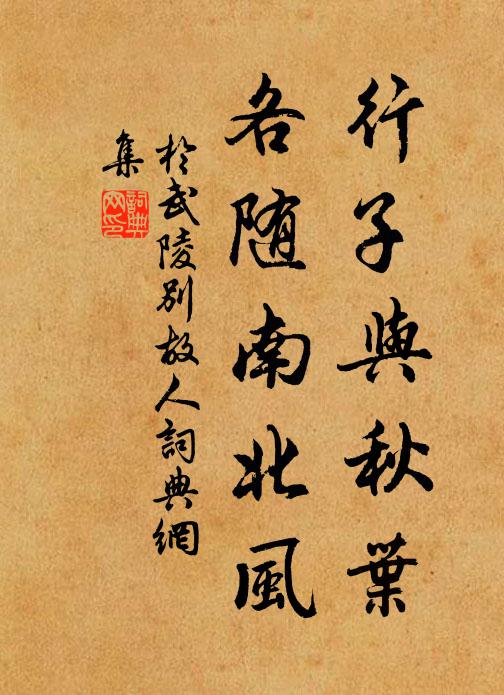 行子與秋葉
各随南北風
於武陵別故人詞典網
集
詞典
网印